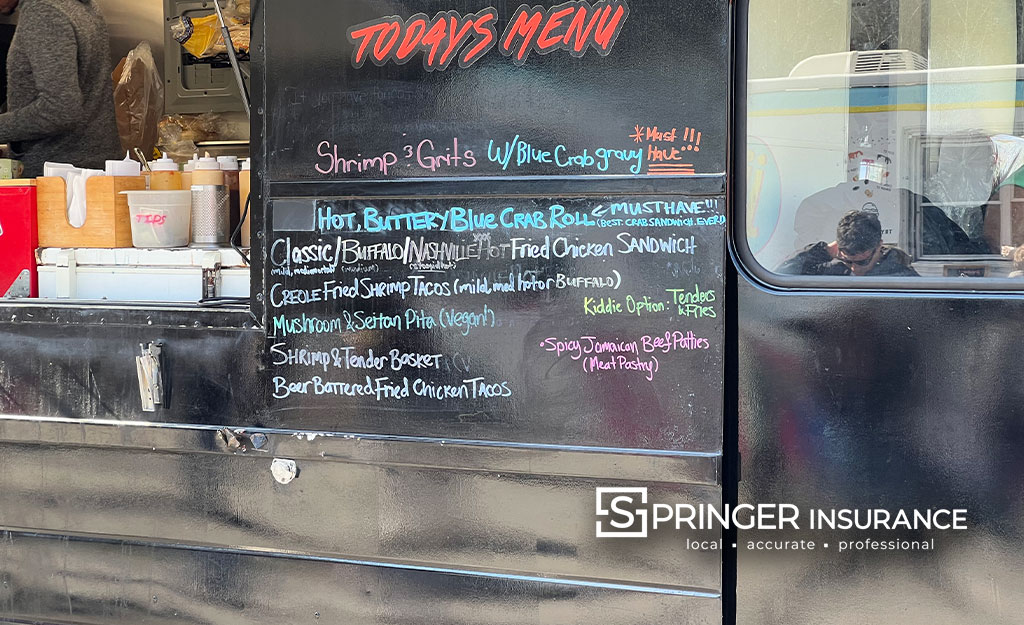 TODAYS MENU
Shrimp & Grits W/Blue Crab gravy *Must Have!!!
HOT, BUTTERY BLUE CRAB ROLL ← MUST HAVE!!!
(BEST CRAB SANDWICH, EVER!)
Classic/BUFFALO/NASHVILLE HOT Fried Chicken SANDWICH
(medium)
CREOLE Fried SHRIMP TACOS (mild, med, hot or BUFFALO)
Kiddie Option: Tenders & Fries
Mushroom & Seitan Pita (vegan!)
SHRIMP & Tender BASKET
•Spicy Jamaican Beef Patties
(Meat Pastry)
Beer Battered Fried Chicken TACOS
TIPS
SPRINGER INSURANCE
local ▪ accurate ▪ professional